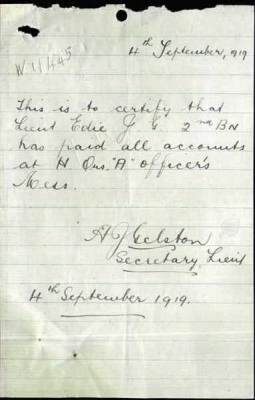 4th September, 1919
W11445
This is to certify that
Lieut Edie J G. 2nd Bn
has paid all accounts
at H Qrs. "A" officer's
Mess.
A J Gelston
Secretary Lieut
4th September 1919.